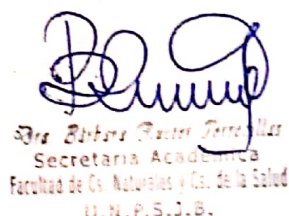 Dra Bárbara
Secretaria Académica
Facultad de Cs. Naturales y Cs. de la Salud
U.N.P.S.J.B.